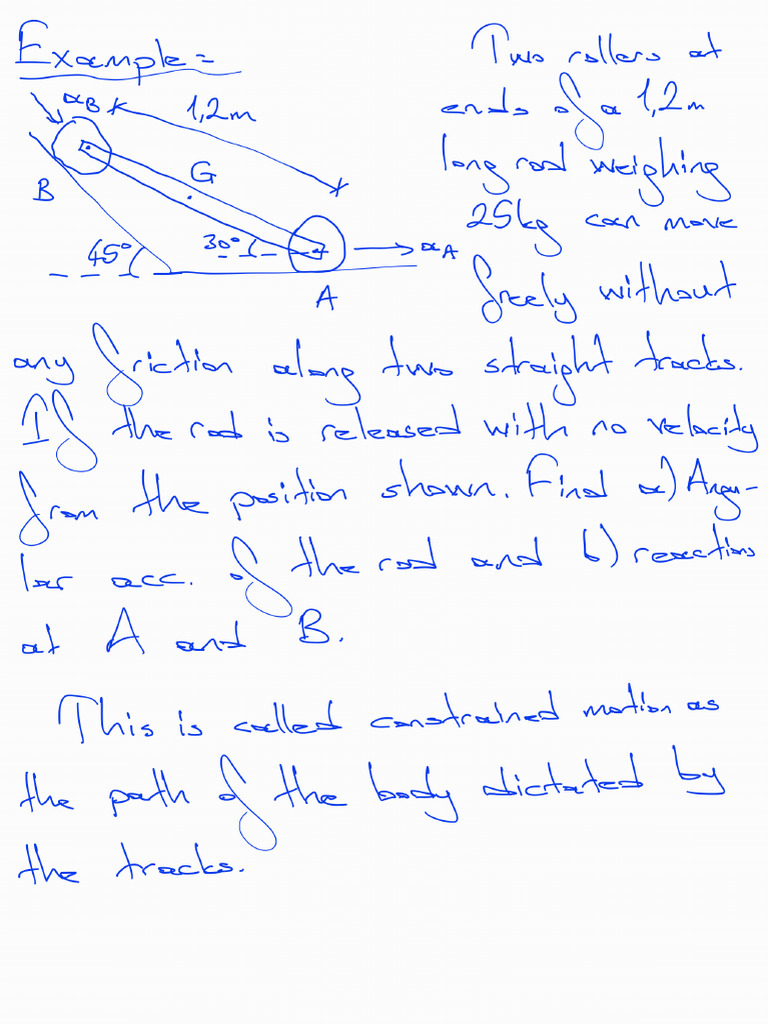 Example =
Two rollers at
aB 1,2m
ends of a 1,2m
G
long rod weighing
B
25kg can move
45° 30° aA
A
freely without
any friction along two straight tracks.
If the rod is released with no velocity
from the position shown. Find a) Angu-
lar acc. of the rod and b) reactions
at A and B.
This is called constrained motion as
the path of the body dictated by
the tracks.